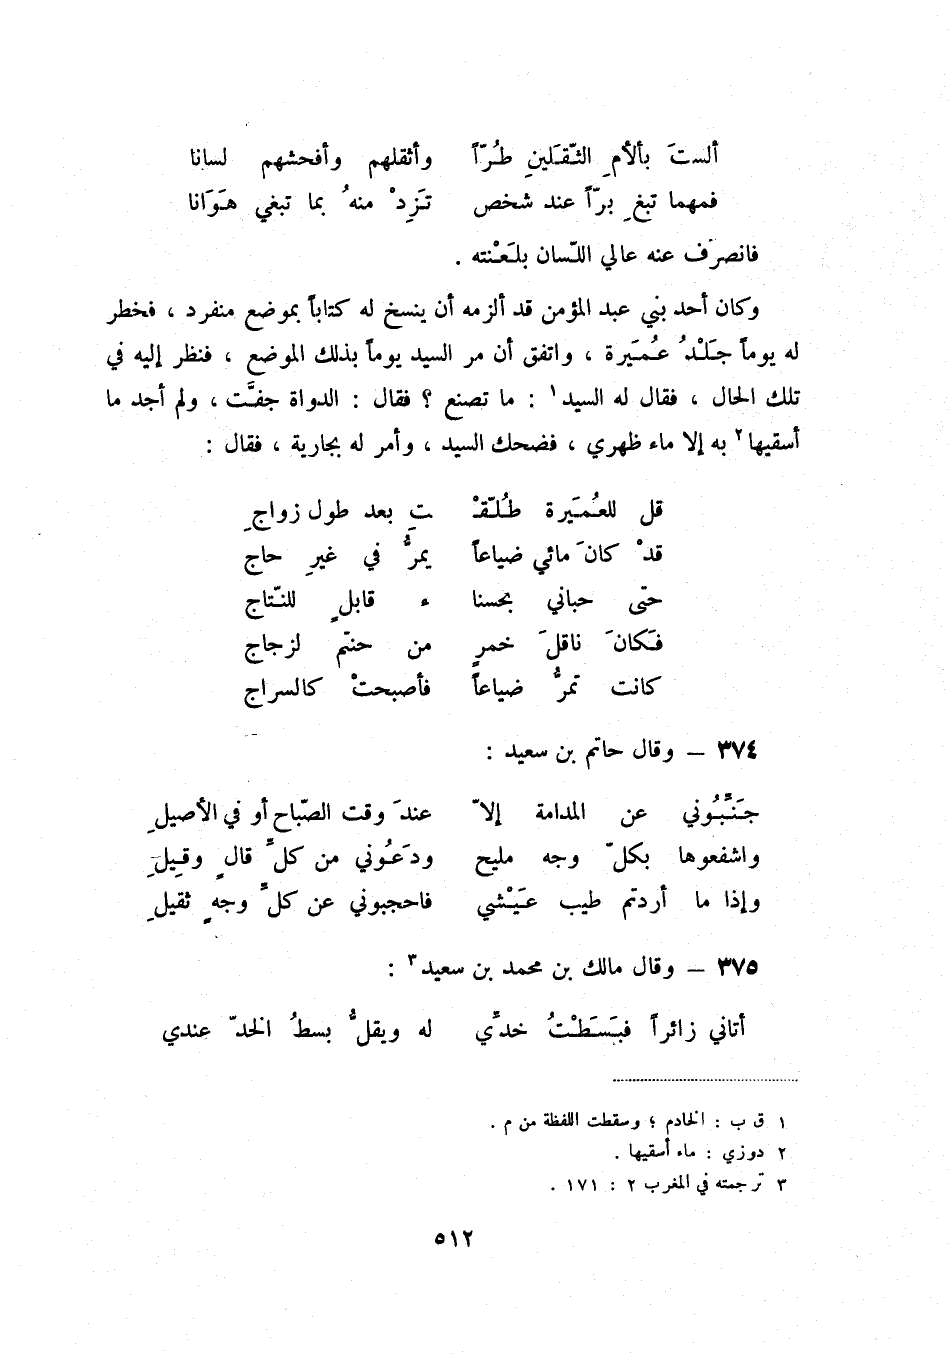 ألستَ بألأمِ الثّقَلينِ طُرّاً وأثقلهم وأفحشهم لسانا
فمهما تبغِ برّاً عند شخص تَزِدْ منهُ بما تبغي هَوَانا
فانصرَف عنه عالي اللّسان بلَعْنته .
وكان أحد بني عبد المؤمن قد ألزمه أن ينسخ له كتاباً بموضع منفرد ، فخطر
له يوماً جَلْدُ عُمَيرة ، واتفق أن مر السيد يوماً بذلك الموضع ، فنظر إليه في
تلك الحال ، فقال له السيد١ : ما تصنع ؟ فقال : الدواة جفَّت ، ولم أجد ما
أسقيها٢ به إلا ماء ظهري ، فضحك السيد ، وأمر له بجارية ، فقال :
قل للعُمَيرة طُلّقْـ ـتِ بعد طول زواجِ
قدْ كانَ مائي ضياعاً يمرُّ في غيرِ حاج
حتّى حباني بحسنا ء قابلٍ للنّتاج
فَكانَ ناقلَ خمرٍ من حنتم لزجاج
كانت تمرُّ ضياعاً فأصبحتْ كالسراج
٣٧٤ – وقال حاتم بن سعيد :
جَنِّبُوني عن المدامة إلاّ عندَ وقت الصّباح أو في الأصيلِ
واشفعوها بكلّ وجه مليح ودَعُوني من كلِّ قالٍ وقِيلِ
وإذا ما أردتم طيب عَيْشي فاحجبوني عن كلِّ وجهٍ ثقيلِ
٣٧٥ – وقال مالك بن محمد بن سعيد٣ :
أتاني زائراً فبَسَطْتُ خدِّي له ويقلُّ بسطُ الخدّ عندي
١ ق ب : الخادم ؛ وسقطت اللفظة من م .
٢ دوزي : ماء أسقيها .
٣ ترجمته في المغرب ٢ : ١٧١ .
٥١٢